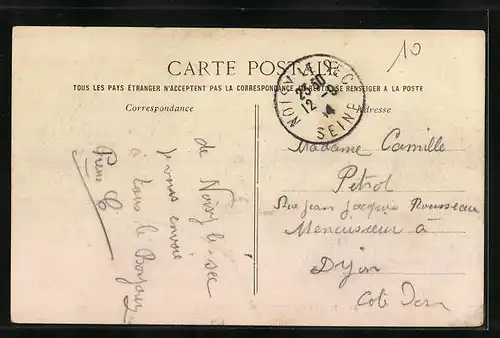 10
CARTE POSTALE
TOUS LES PAYS ÉTRANGER N'ACCEPTENT PAS LA CORRESPONDANCE RENSEIGNER A LA POSTE
Correspondance
Adresse
NOISY-LE-SEC
23-50
12 -9
14
SEINE
de Noisy le sec
je vous envoie
à tous le Bonjour
Madame Camille
Petrol
Rue Jean Jacques Rousseau
Menuisier à
Dijon
Cote Dor